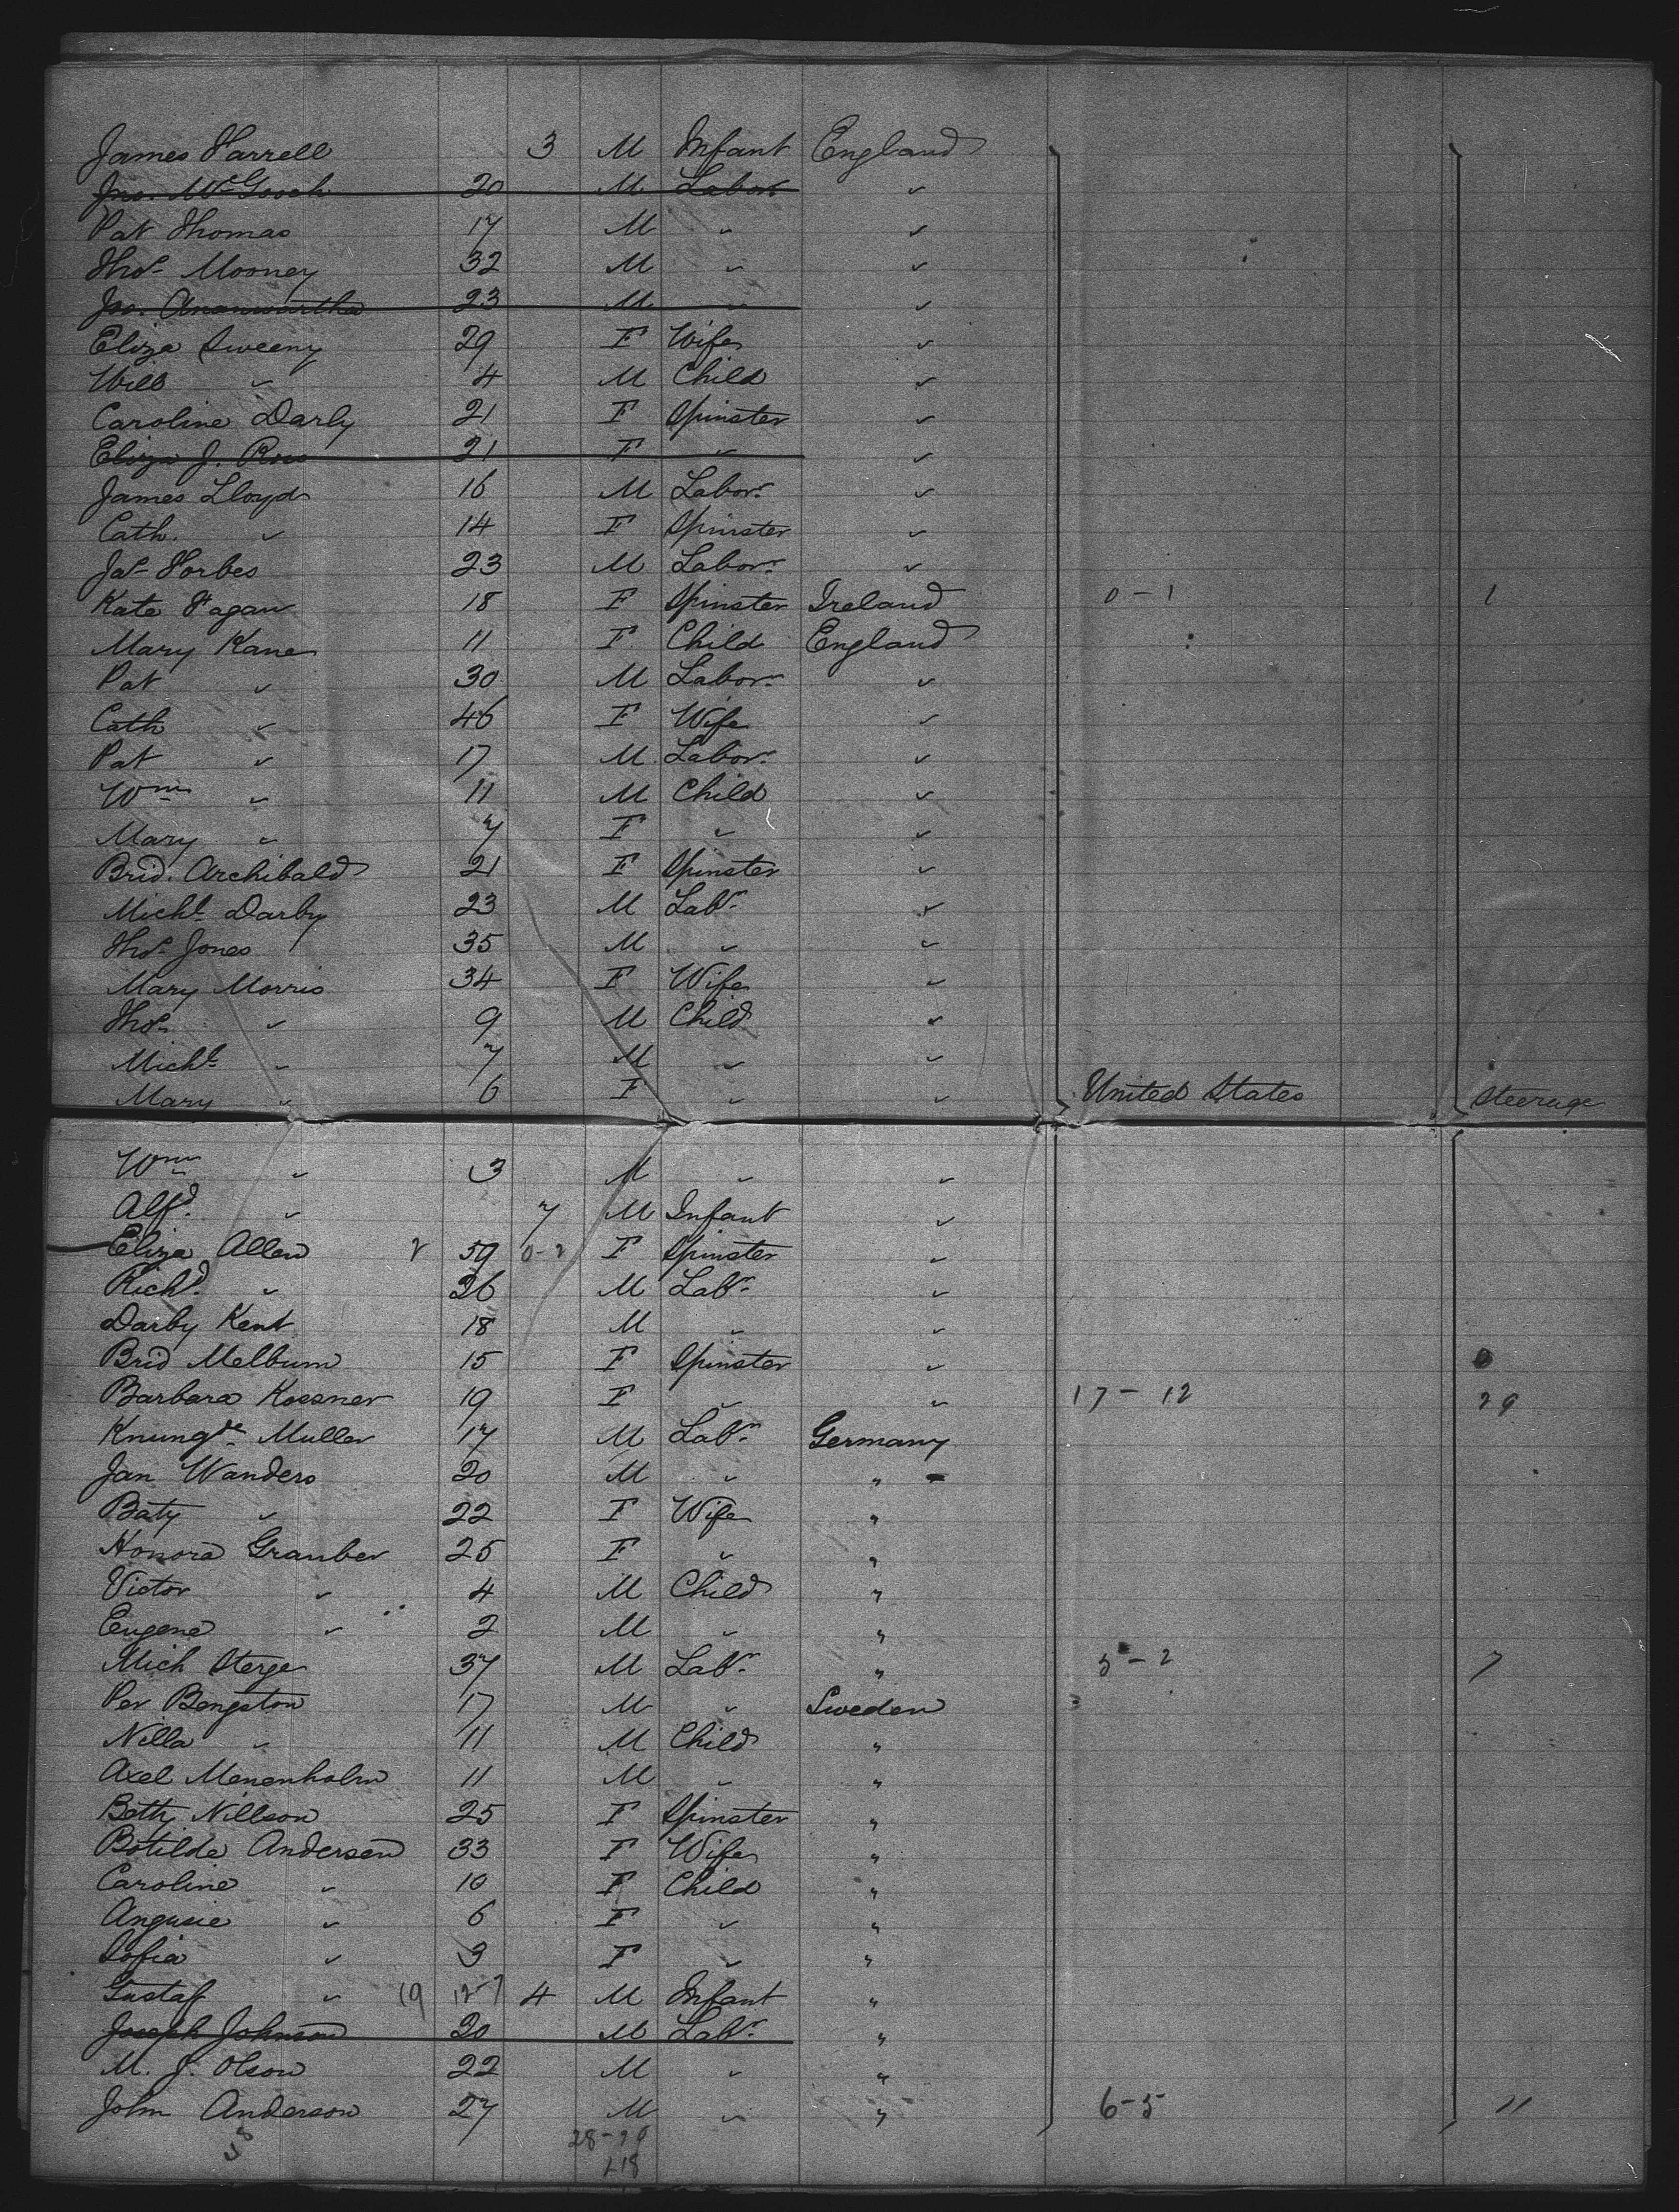 James Farrell 3 M Infant England
Jno. McGooch 20 M Labor ✓
Pat Thomas 17 M " ✓
Thos. Mooney 32 M " ✓
Jno. 23 M " ✓
Eliza Sweeny 29 F Wife ✓
Will " 4 M Child ✓
Caroline Darby 21 F Spinster ✓
Eliza J. Row 21 F " ✓
James Lloyd 16 M Labor. ✓
Cath. " 14 F Spinster ✓
Jas. Forbes 23 M Labor. ✓
Kate Fagan 18 F Spinster Ireland 0-1 1
Mary Kane 11 F Child England
Pat " 30 M Labor. ✓
Cath " 46 F Wife ✓
Pat " 17 M Labor. ✓
Wm " 11 M Child ✓
Mary " 7 F " ✓
Brid. Archibald 21 F Spinster ✓
Michl. Darby 23 M Labr. ✓
Thos. Jones 35 M " ✓
Mary Morris 34 F Wife ✓
Thos. " 9 M Child ✓
Michl. " 7 M " ✓
Mary " 6 F " ✓ United States Steerage
Wm " 3 M " ✓
Alfd. " 7 M Infant ✓
Eliza Allen 2 59 0-2 F Spinster ✓
Richd. " 26 M Labr. ✓
Darby Kent 18 M " ✓
Brid Melburn 15 F Spinster ✓
Barbara Kossner 19 F " ✓ 17-12 29
Knungde. Muller 17 M Labr. Germany
Jan Wanders 20 M " "
Baty " 22 F Wife "
Honora Grauber 25 F " "
Victor " 4 M Child "
Eugene " 2 M " "
Mich Sterge 37 M Labr. " 5-2 7
Per Bengston 17 M " Sweden
Nilla " 11 M Child "
Axel Menenholm 11 M " "
Betty Nillson 25 F Spinster "
Botilda Andersen 33 F Wife "
Caroline " 10 F Child "
Angusie " 6 F " "
Sofia " 3 F " "
Gustaf " 19 12-7 4 M Infant "
Joseph Johnson 20 M Labr. "
M. J. Olson 22 M " "
John Anderson 27 M " " 6-5 11
28-20